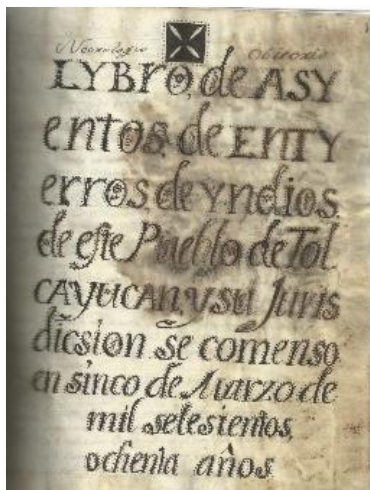 Necrologio Obituario
LYBRO, de ASY
entos, de ENTY
erros de yndios
de este Pueblo de Tol
CAYUCAN, y su Juris
dicsion se comenso
en sinco de Marzo de
mil setesientos
ochenta años